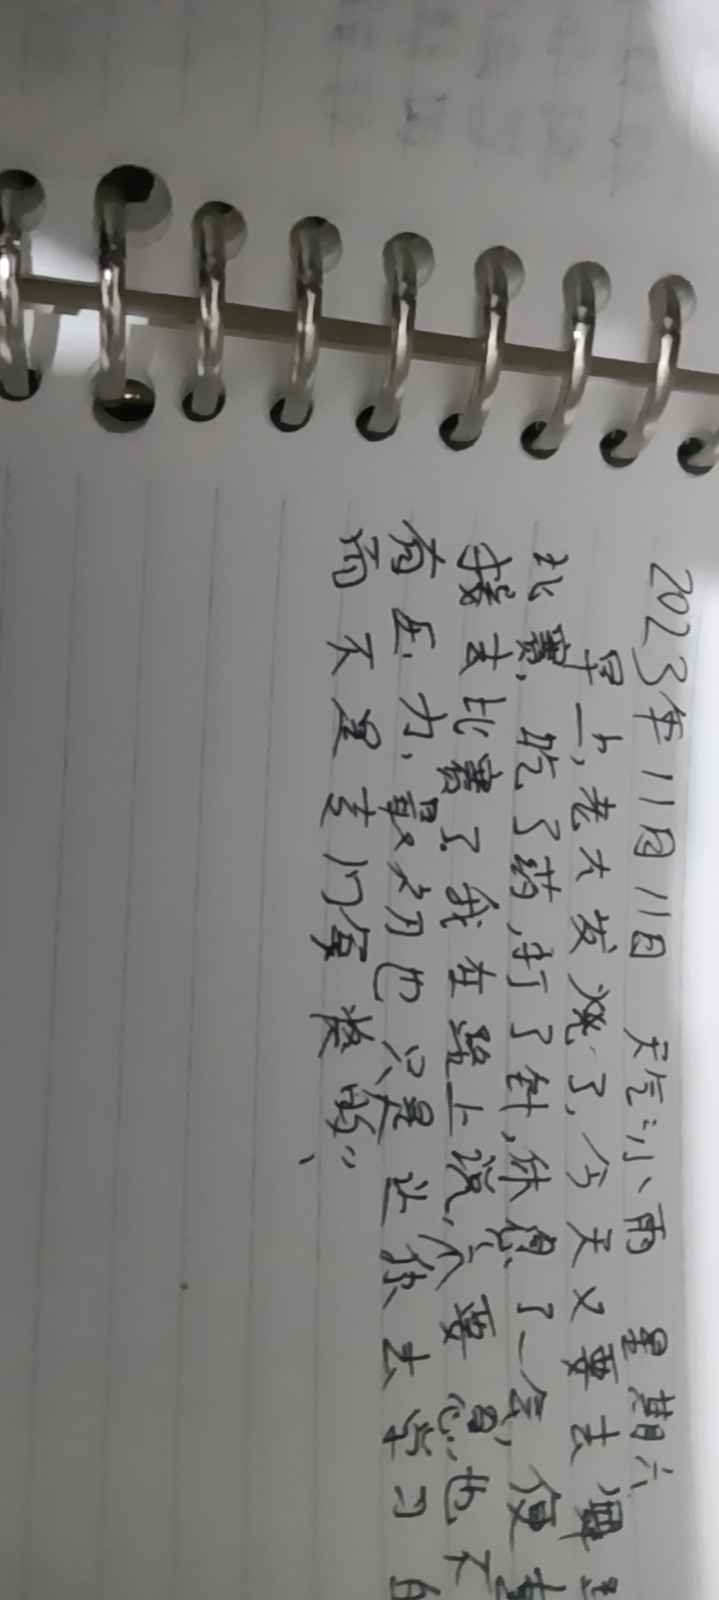 2023年11月11日 天气:小雨 星期六
早上,老大发烧了,今天又要去
比赛,吃了药,打了针,休息了一会,便直
接去比赛了。我在路上说,不要急也不
有压力,最初也只是让你去学习自
而不是专门拿奖的"、